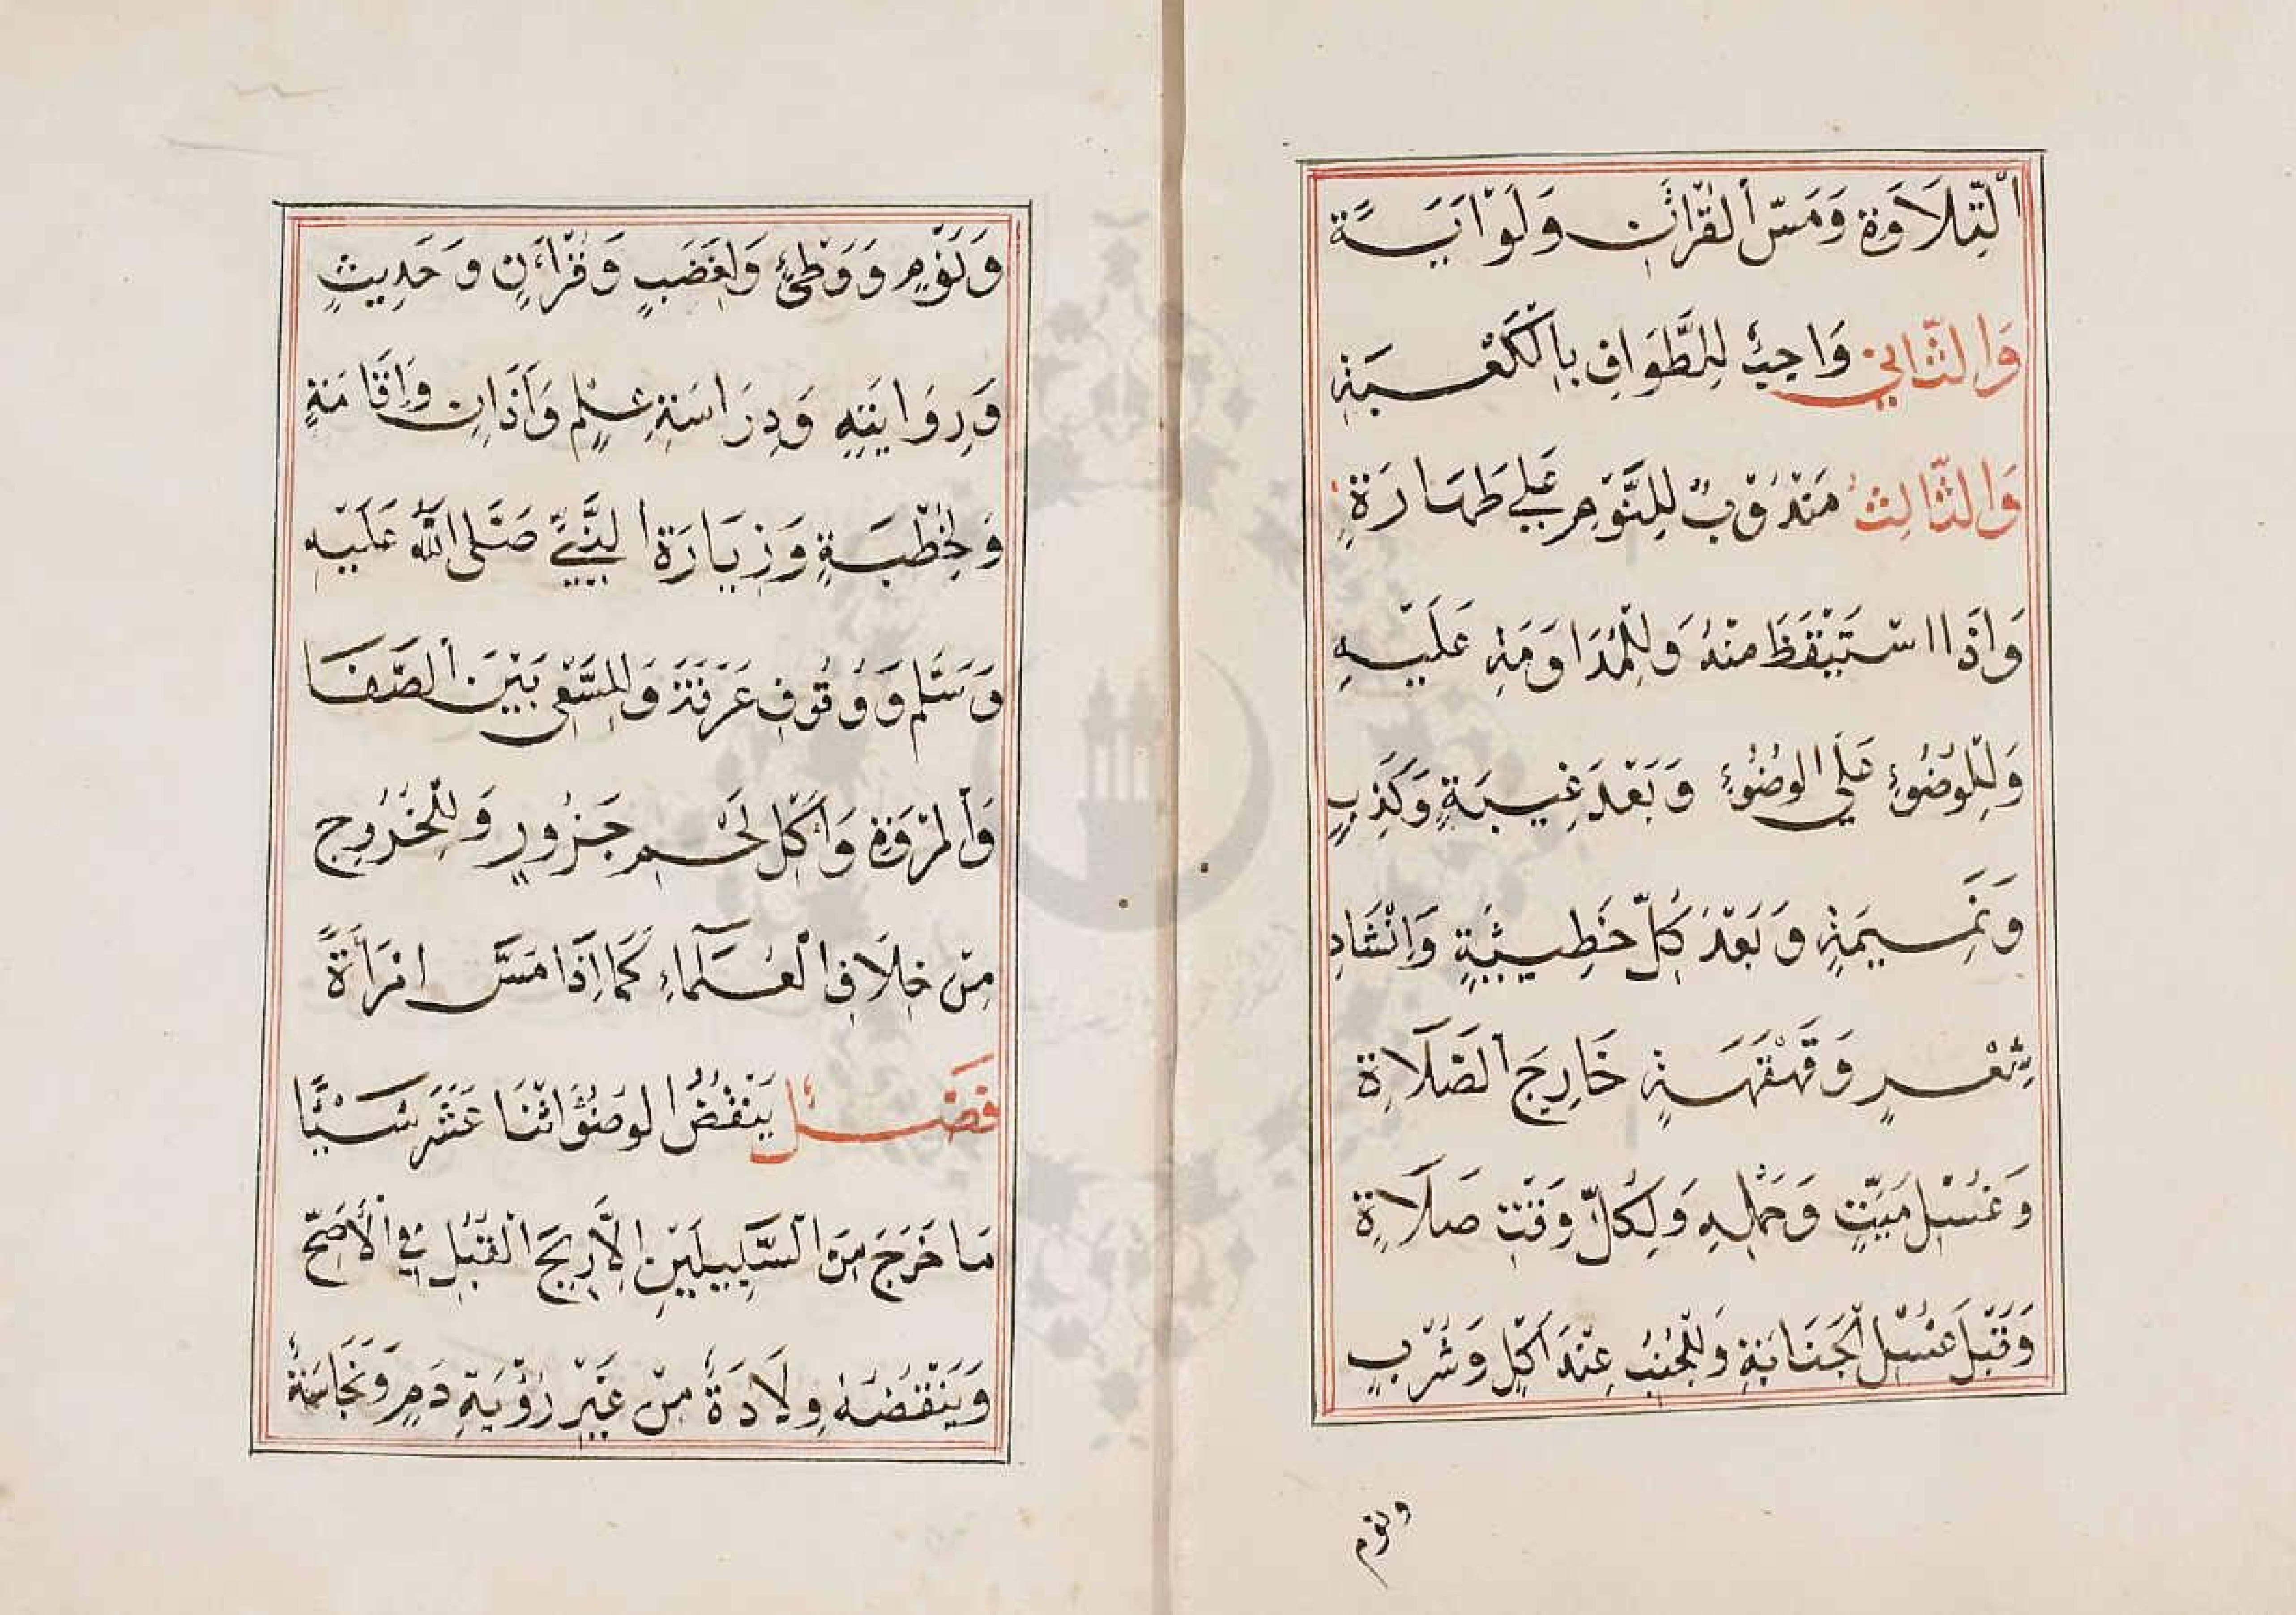 اَلتِّلَاوَةِ وَمَسِّ الْقُرْاٰنِ وَلَوْ اٰيَةً
وَالثَّانِي وَاجِبٌ لِلطَّوَافِ بِالْكَعْبَةِ
وَالثَّالِثُ مَنْدُوْبٌ لِلنَّوْمِ عَلٰي طَهَارَةٍ
وَاِذَا اسْتَيْقَظَ مِنْهُ وَلِلْمُدَاوَمَةِ عَلَيْهِ
وَلِلْوُضُوْءِ عَلَي الْوُضُوْءِ وَبَعْدَ غِيْبَةٍ وَكَذِبٍ
وَنَمِيمَةٍ وَبَعْدَ كُلِّ خَطِيْئَةٍ وَاِنْشَادِ
شِعْرٍ وَقَهْقَهَةٍ خَارِجَ الصَّلَاةِ
وَغُسْلِ مَيِّتٍ وَحَمْلِهِ وَلِكُلِّ وَقْتِ صَلَاةِ
وَقَبْلَ غُسْلِ الْجَنَابَةِ وَلِلْجُنُبِ عِنْدَ اَكْلٍ وَشُرْبٍ
ونوم
وَنَوْمٍ وَوَطْئٍ وَلِغَضَبٍ وَقُرْاٰنٍ وَحَدِيثٍ
وَرِوَايَتِهِ وَدِرَاسَةِ عِلْمٍ وَاَذَانٍ وَاِقَامَةٍ
وَخُطْبَةٍ وَزِيَارَةِ النَّبِيِّ صَلَّى اللّٰهُ عَلَيْهِ
وَسَلَّمَ وَوُقُوْفِ عَرَفَةَ وَلِلسَّعْى بَيْنَ الصَّفَا
وَالْمَرْوَةِ وَاَكْلِ لَحْمِ جَزُورٍ وَلِلْخُرُوجِ
مِنْ خِلَافِ الْعُلَمَاءِ كَمَا اِذَا مَسَّ امْرَأَةً
فَصْلٌ يَنْقُضُ الْوضُوْءَ اثْنَا عَشَرَ شَيْئًا
مَا خَرَجَ مِنَ السَّبِيلَيْنِ اِلَّا رِيْحَ الْقُبُلِ فِي الْأَصَحِّ
وَيَنْقُضُهُ وِلَادَةٌ مِنْ غَيْرِ رُؤْيَةِ دَمٍ وَنَجَاسَةٌ